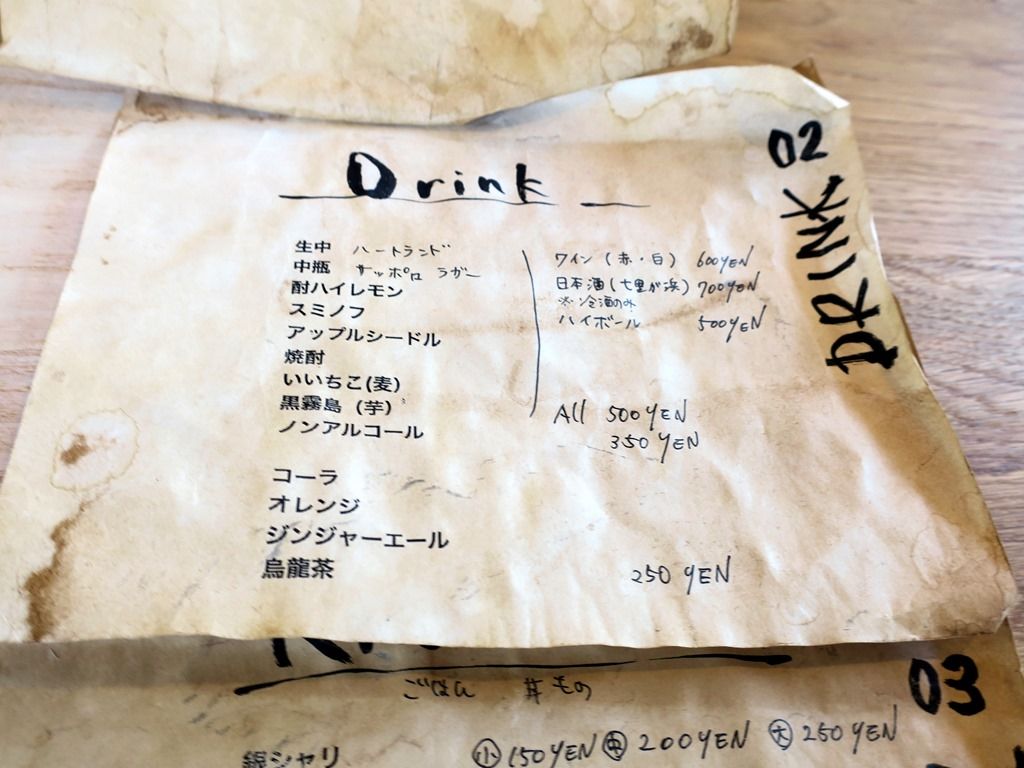 Drink
02
DRINK
生中 ハートランド
中瓶 サッポロ ラガー
酎ハイレモン
スミノフ
アップルシードル
焼酎
いいちこ(麦)
黒霧島 (芋)
ノンアルコール
ワイン (赤・白) 600YEN
日本酒 (七里が浜) 700YEN
※冷酒のみ
ハイボール 500YEN
All 500YEN
350YEN
コーラ
オレンジ
ジンジャーエール
烏龍茶
250 YEN
03
ごはん 丼もの
銀シャリ 小 150YEN 中 200YEN 大 250YEN